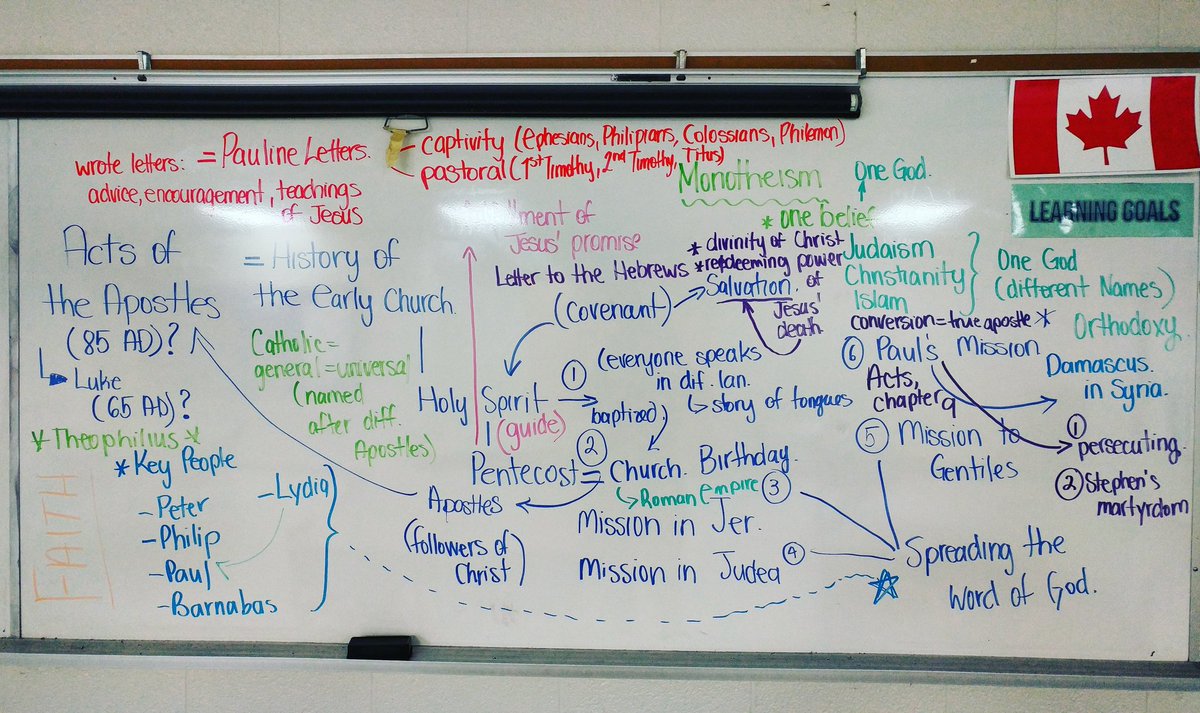 wrote letters: = Pauline Letters.
advice, encouragement, teachings
of Jesus
- captivity (Ephesians, Philipians, Colossians, Philemon)
- pastoral (1st Timothy, 2nd Timothy, Titus)
Monotheism
One God.
* one belief
LEARNING GOALS
Acts of
the Apostles
(85 AD)?
Luke
(65 AD)?
*Theophilius*
= History of
the early Church.
Catholic =
general = universal
(named
after diff.
Apostles)
of
Jesus' promise
Letter to the Hebrews
(Covenant)
* divinity of Christ
* redeeming power
Salvation. of
Jesus'
death
Judaism
Christianity
Islam
One God
(different Names)
Orthodoxy
conversion = true apostle *
6 Paul's Mission
Acts,
chapter 9
Damascus
in Syria.
1 persecuting.
2 Stephen's
martyrdom
5 Mission to
Gentiles
Holy Spirit
(guide)
1 (everyone speaks
in dif. lan.
story of tongues
baptized)
2
Pentecost = Church. Birthday.
Roman empire 3
Mission in Jer.
Mission in Judea 4
Apostles
(followers of
Christ)
Spreading the
Word of God.
* Key People
- Peter
- Philip
- Paul
- Barnabas
- Lydia
FAITH